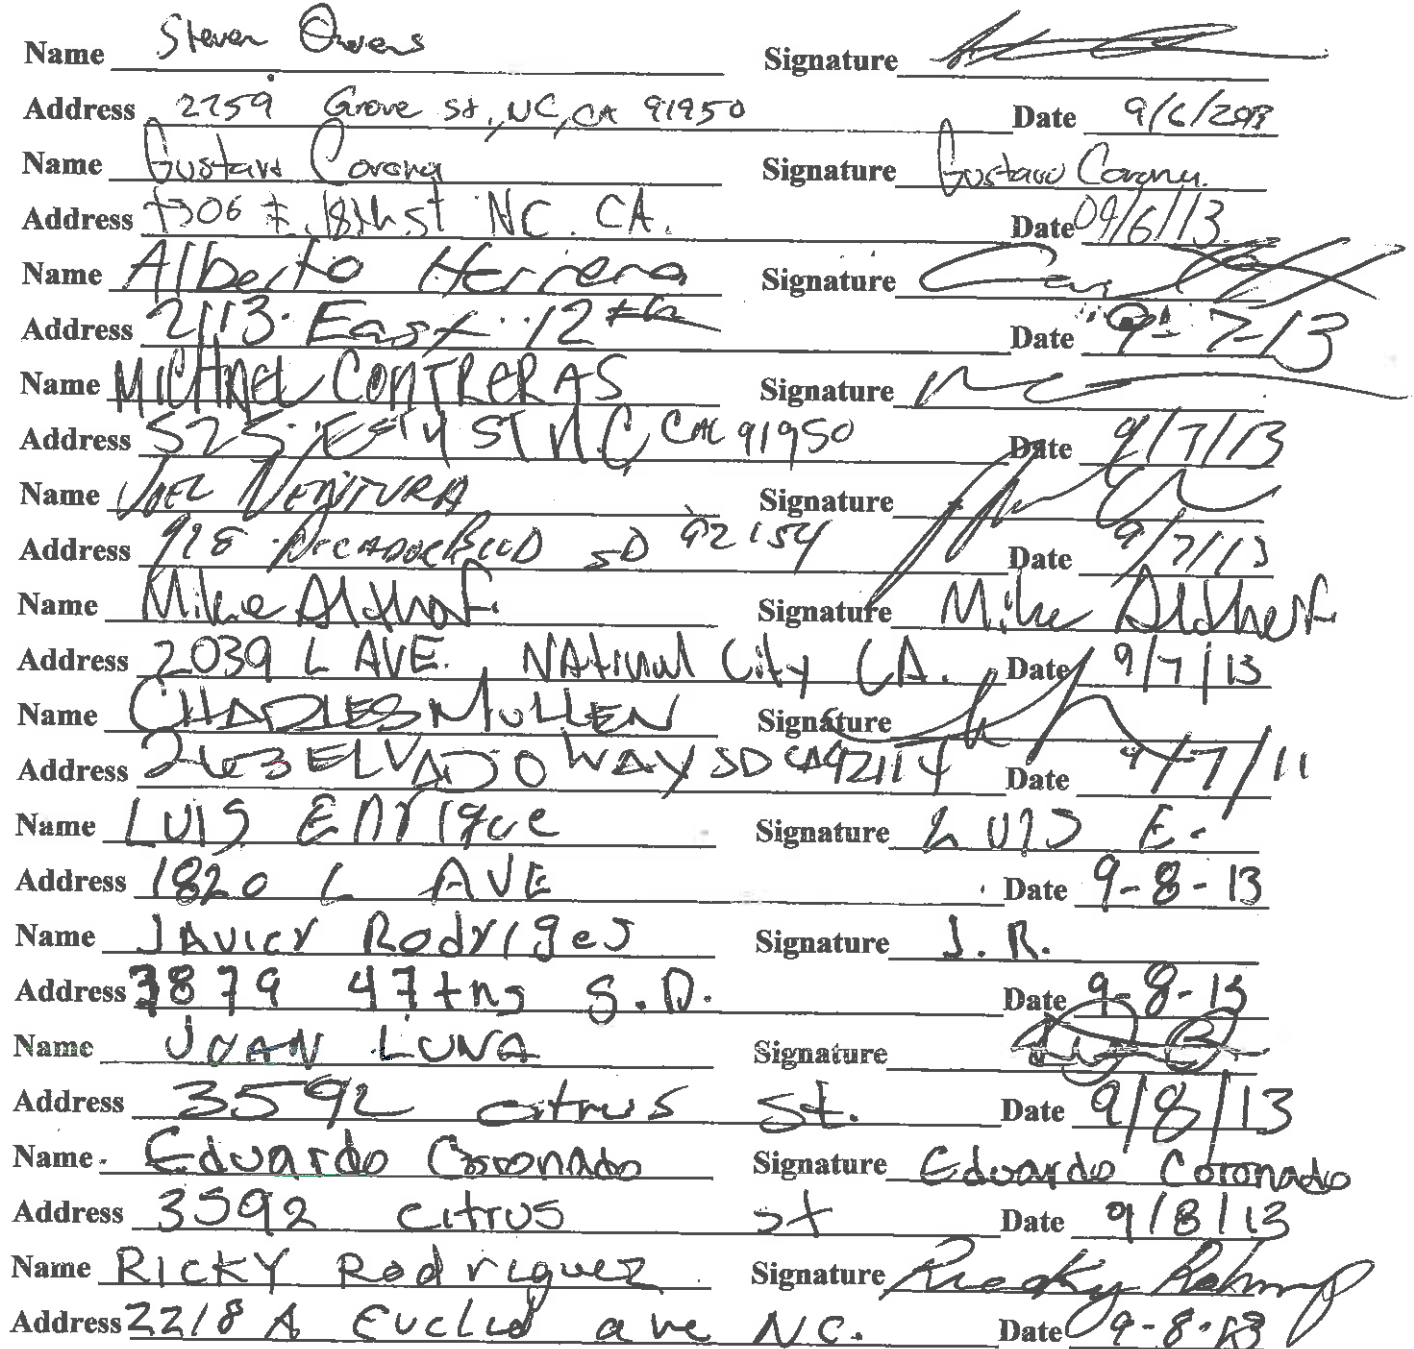 Name Steven Owens Signature
Address 2759 Grove St, NC, CA 91950 Date 9/6/2013
Name Gustavo Corona Signature Gustavo Corona
Address E. 18th st NC. CA. Date 09/6/13
Name Alberto Herrera Signature
Address 2113 East 12th Date 9-7-13
Name MICHAEL CONTRERAS Signature
Address 525 E ST N.C CAL 91950 Date 9/7/13
Name JOEL VENTURA Signature
Address 918 SD 92154 Date 9/7/13
Name Mike Signature Mike
Address 2039 L AVE. National City CA. Date 9/7/13
Name CHARLES MULLEN Signature
Address 263 ELVADO WAY SD CA 92114 Date 9/7/11
Name LUIS Enrique Signature LUIS E.
Address 1820 L AVE Date 9-8-13
Name JAVIER Rodriges Signature J. R.
Address 3879 47 tns S.D. Date 9-8-13
Name JUAN LUNA Signature
Address 3592 citrus St. Date 9/8/13
Name Eduardo Coronado Signature Eduardo Coronado
Address 3592 citrus st Date 9/8/13
Name RICKY Rodriguez Signature Ricky
Address 2218 A Euclid ave N.C. Date 9-8-13